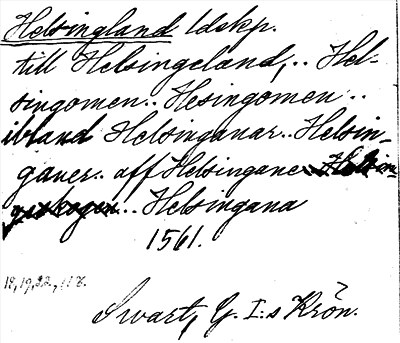 Helsingland ldskp.
till Helsingeland, .. Hel-
singomen .. Hesingomen ..
ibland Helsinganar .. Helsin-
ganer .. aff Helsingane
.. Helsingana
1561.
18, 19, 22, 118.
Swart, G. I:s Krön.